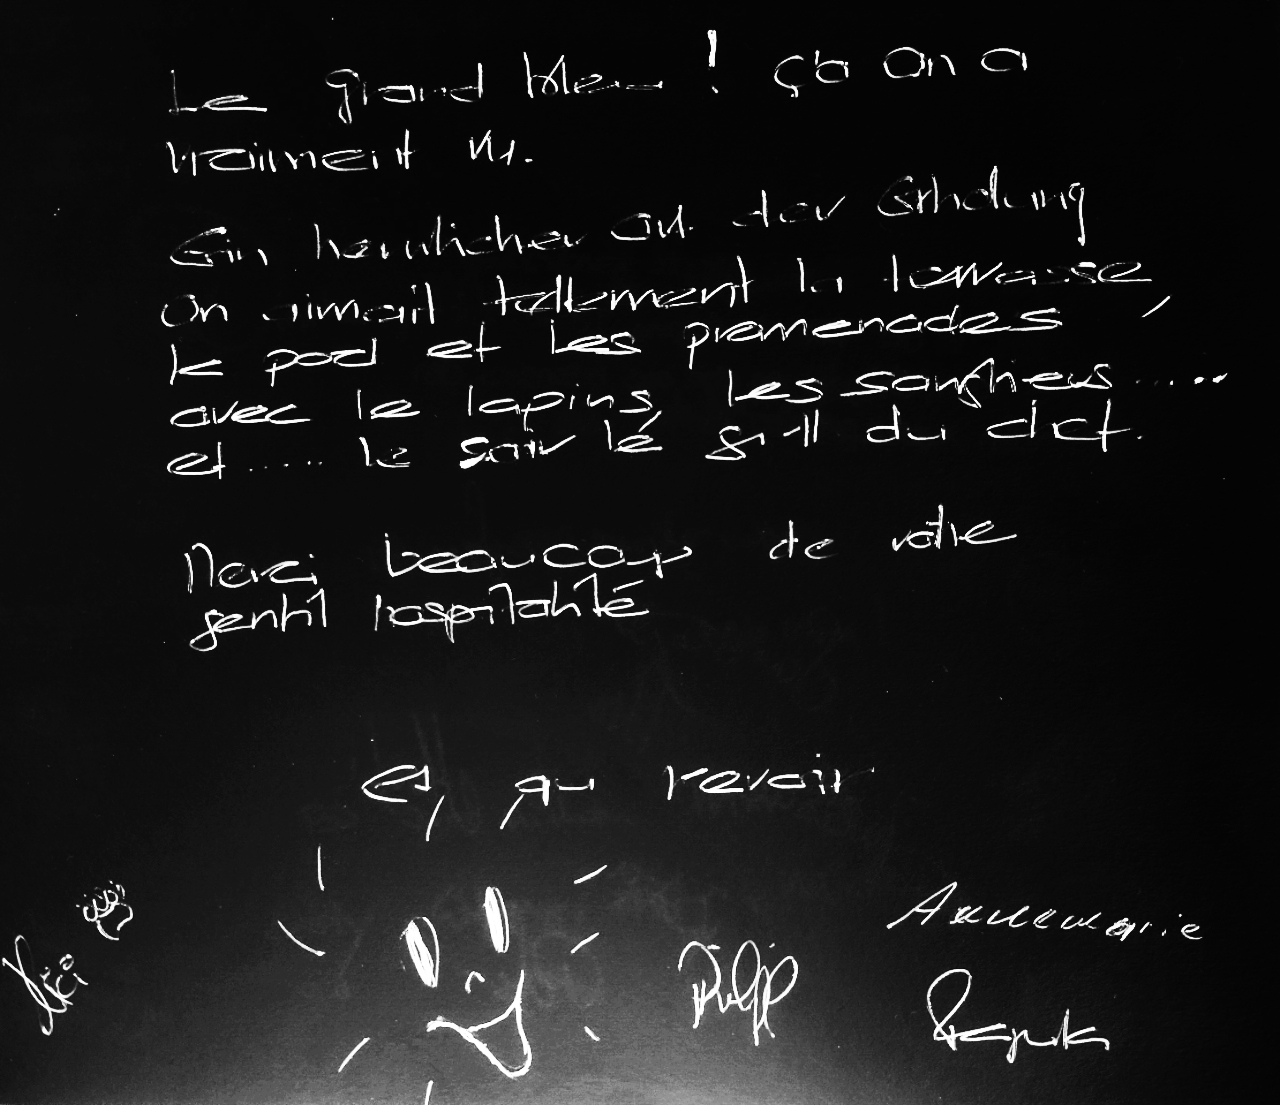 Le grand bleu ! ça on a
vraiment vu.
Ein herrlicher Ort der Erholung
On aimait tellement la terrasse,
le pool et les promenades
avec le lapins, les sangliers .....
et ..... le soir le grill du chef.
Merci beaucoup de votre
gentil hospitalité
et, au revoir
Annemarie